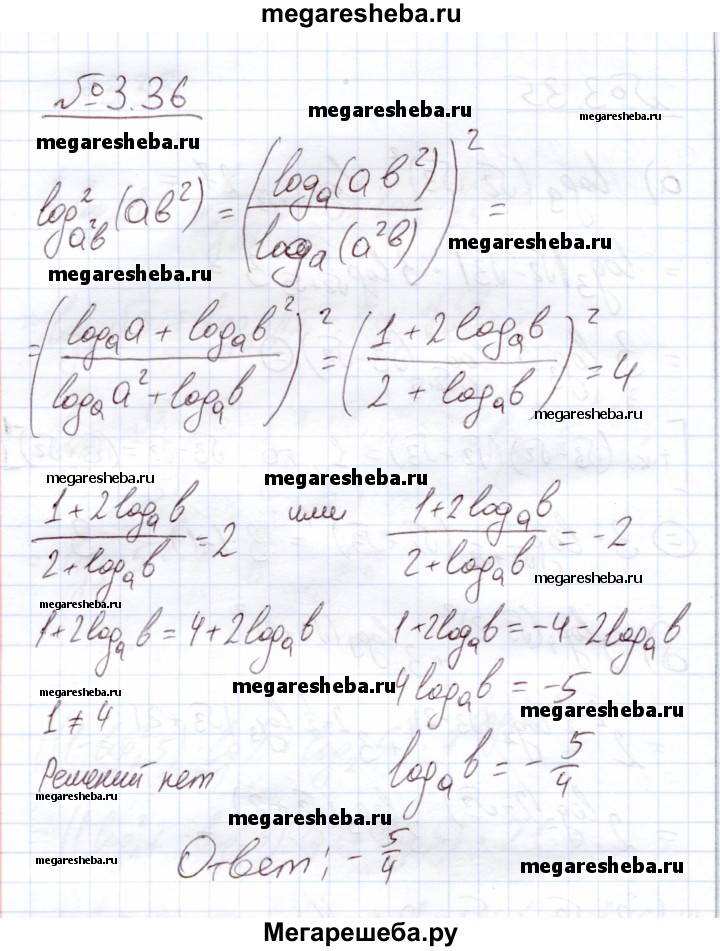 megaresheba.ru
№3.36
megaresheba.ru
megaresheba.ru
log²_{a²b}(ab²) = (log_a(ab²) / log_a(a²b))² =
megaresheba.ru
megaresheba.ru
= ((log_a a + log_a b²) / (log_a a² + log_a b))² = ((1 + 2log_a b) / (2 + log_a b))² = 4
megaresheba.ru
megaresheba.ru
megaresheba.ru
(1 + 2log_a b) / (2 + log_a b) = 2 или (1 + 2log_a b) / (2 + log_a b) = -2
megaresheba.ru
megaresheba.ru
1 + 2log_a b = 4 + 2log_a b 1 + 2log_a b = -4 - 2log_a b
megaresheba.ru
megaresheba.ru
4log_a b = -5
megaresheba.ru
1 ≠ 4
log_a b = -5/4
Решений нет
megaresheba.ru
megaresheba.ru
Ответ: -5/4
megaresheba.ru
megaresheba.ru
Мегарешеба.ру